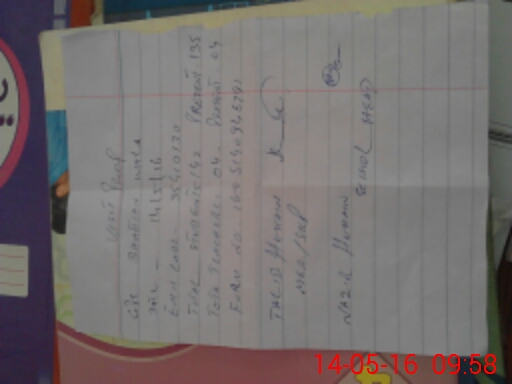 Visit Proof
GPS
Date - 14/5/16
EMIS Code. 35410130
Total Students 142 Present 135
Total Teachers. 04. Present 04
Form No.
Talib Hussain
MEA/SKP
Nazir Hussain
School Head
14-05-16 09:58